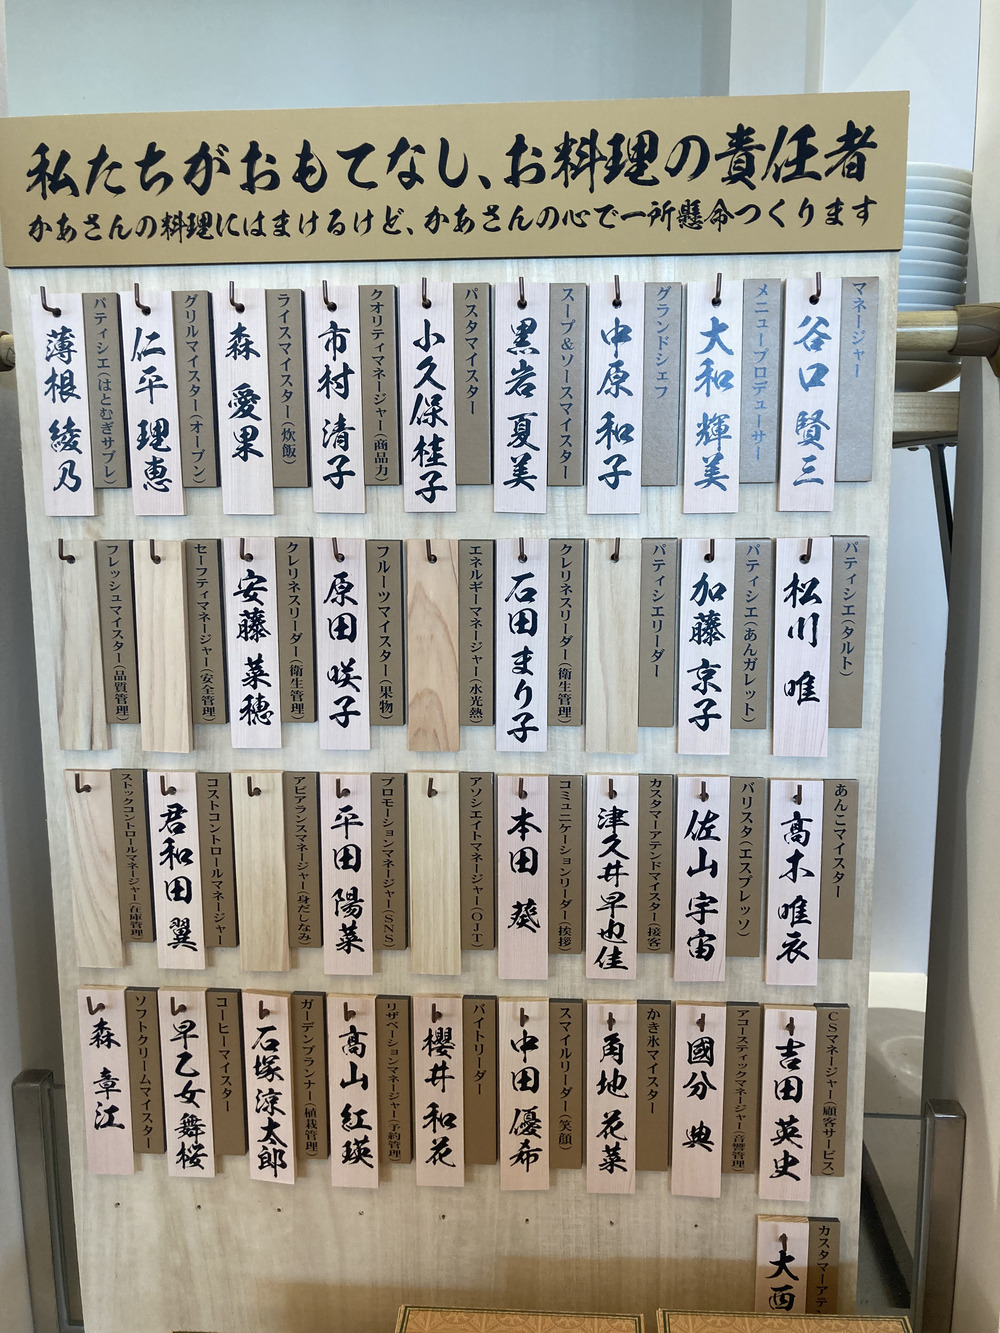 私たちがおもてなし、お料理の責任者
かあさんの料理にはまけるけど、かあさんの心で一所懸命つくります
マネージャー
谷口 賢三
メニュープロデューサー
大和 輝美
グランドシェフ
中原 和子
スープ&ソースマイスター
黒岩 夏美
パスタマイスター
小久保 桂子
クオリティマネージャー(商品力)
市村 清子
ライスマイスター(炊飯)
森 愛果
グリルマイスター(オーブン)
仁平 理恵
パティシエ(はとむぎサブレ)
薄根 綾乃
パティシエ(タルト)
松川 唯
パティシエ(あんガレット)
加藤 京子
パティシエリーダー
クレリネスリーダー(衛生管理)
石田 まり子
エネルギーマネージャー(水光熱)
フルーツマイスター(果物)
原田 咲子
クレリネスリーダー(衛生管理)
安藤 菜穂
セーフティマネージャー(安全管理)
フレッシュマイスター(品質管理)
あんこマイスター
髙木 唯衣
バリスタ(エスプレッソ)
佐山 宇宙
カスタマーアテンドマイスター(接客)
津久井 早也佳
コミュニケーションリーダー(挨拶)
本田 葵
アソシエイトマネージャー(OJT)
プロモーションマネージャー(SNS)
平田 陽菜
アピアランスマネージャー(身だしなみ)
コストコントロールマネージャー
君和田 翼
ストックコントロールマネージャー(在庫管理)
CSマネージャー(顧客サービス)
吉田 英史
アコースティックマネージャー(音響管理)
國分 典
かき氷マイスター
角地 花菜
スマイルリーダー(笑顔)
中田 優希
バイトリーダー
櫻井 和花
リザベーションマネージャー(予約管理)
髙山 紅瑛
ガーデンプランナー(植栽管理)
石塚 涼太郎
コーヒーマイスター
早乙女 舞桜
ソフトクリームマイスター
森 章江
カスタマーアテン
大西